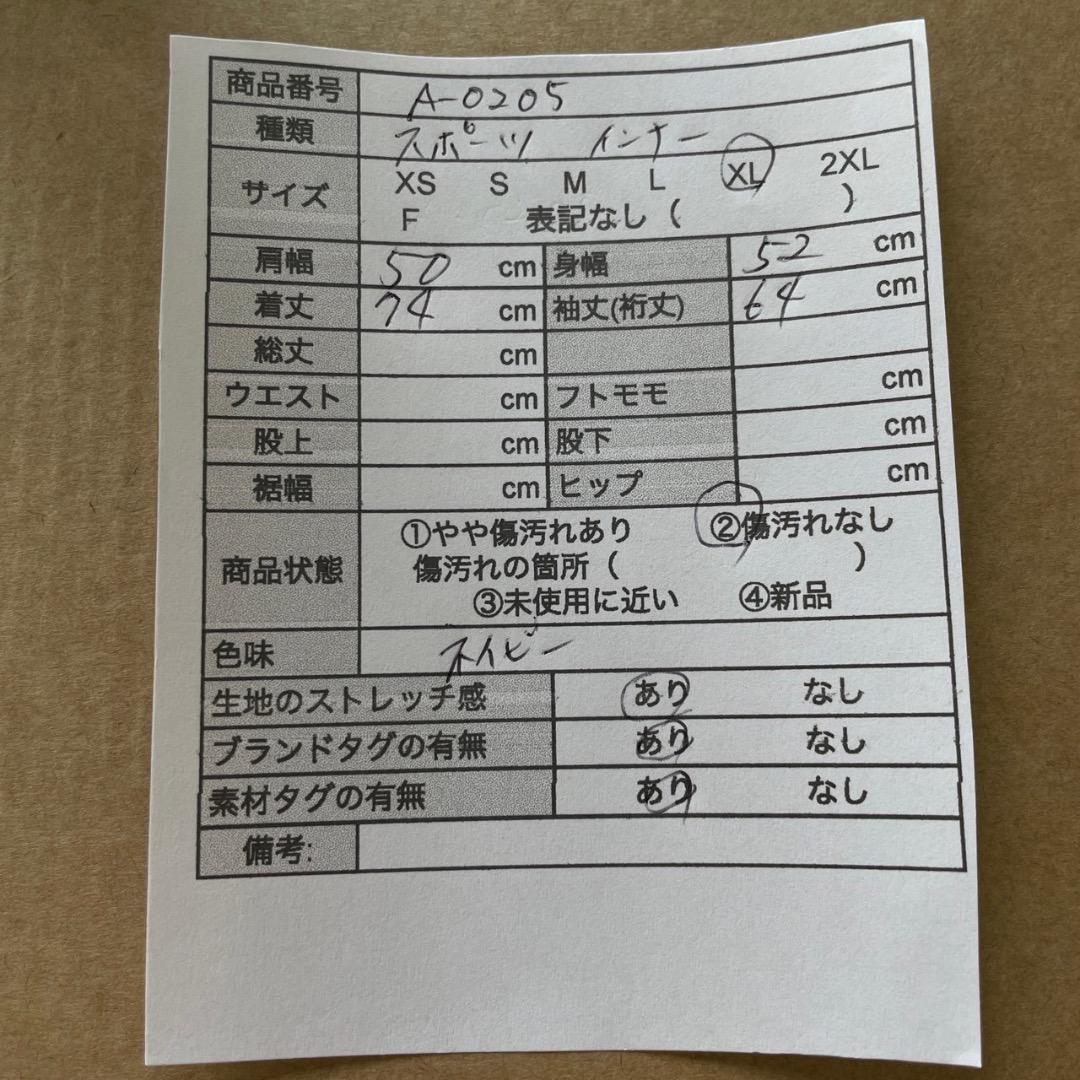 商品番号 A-0205
種類 スポーツ インナー
サイズ XS S M L XL 2XL
F 表記なし ( )
肩幅 50 cm 身幅 52 cm
着丈 74 cm 袖丈(裄丈) 64 cm
総丈 cm
ウエスト cm フトモモ cm
股上 cm 股下 cm
裾幅 cm ヒップ cm
商品状態 ①やや傷汚れあり ②傷汚れなし
傷汚れの箇所 ( )
③未使用に近い ④新品
色味 ネイビー
生地のストレッチ感 あり なし
ブランドタグの有無 あり なし
素材タグの有無 あり なし
備考: